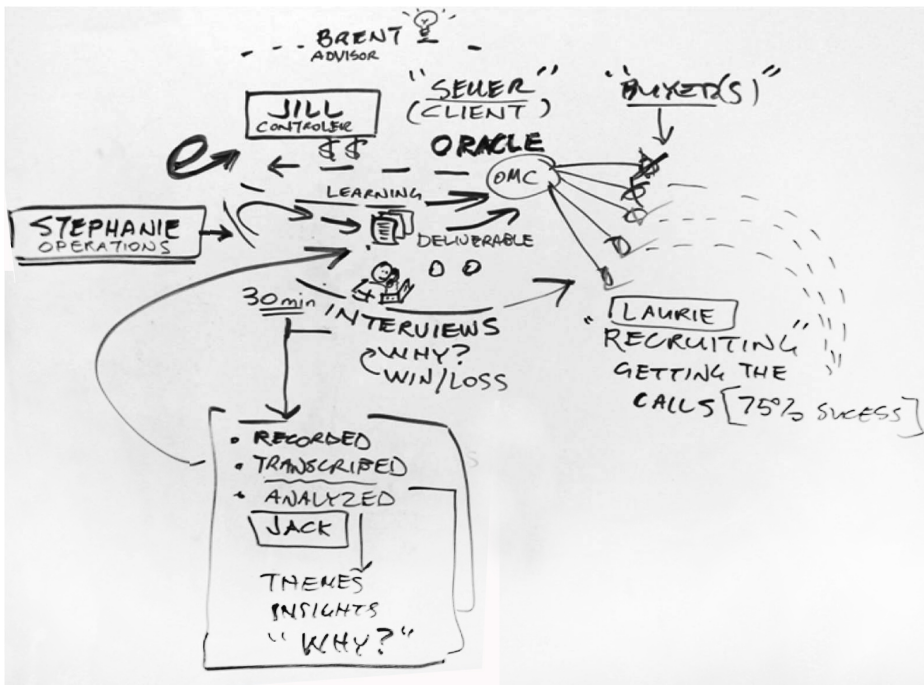 BRENT
ADVISOR
"SELLER"
(CLIENT)
ORACLE
"BUYER(S)"
JILL
CONTROLER
$ $
OMC
LEARNING
STEPHANIE
OPERATIONS
DELIVERABLE
30 min
INTERVIEWS
WHY?
WIN/LOSS
"LAURIE
RECRUITING"
GETTING THE
CALLS [75% SUCESS]
• RECORDED
• TRANSCRIBED
• ANALYZED
JACK
THEMES
INSIGHTS
"WHY?"